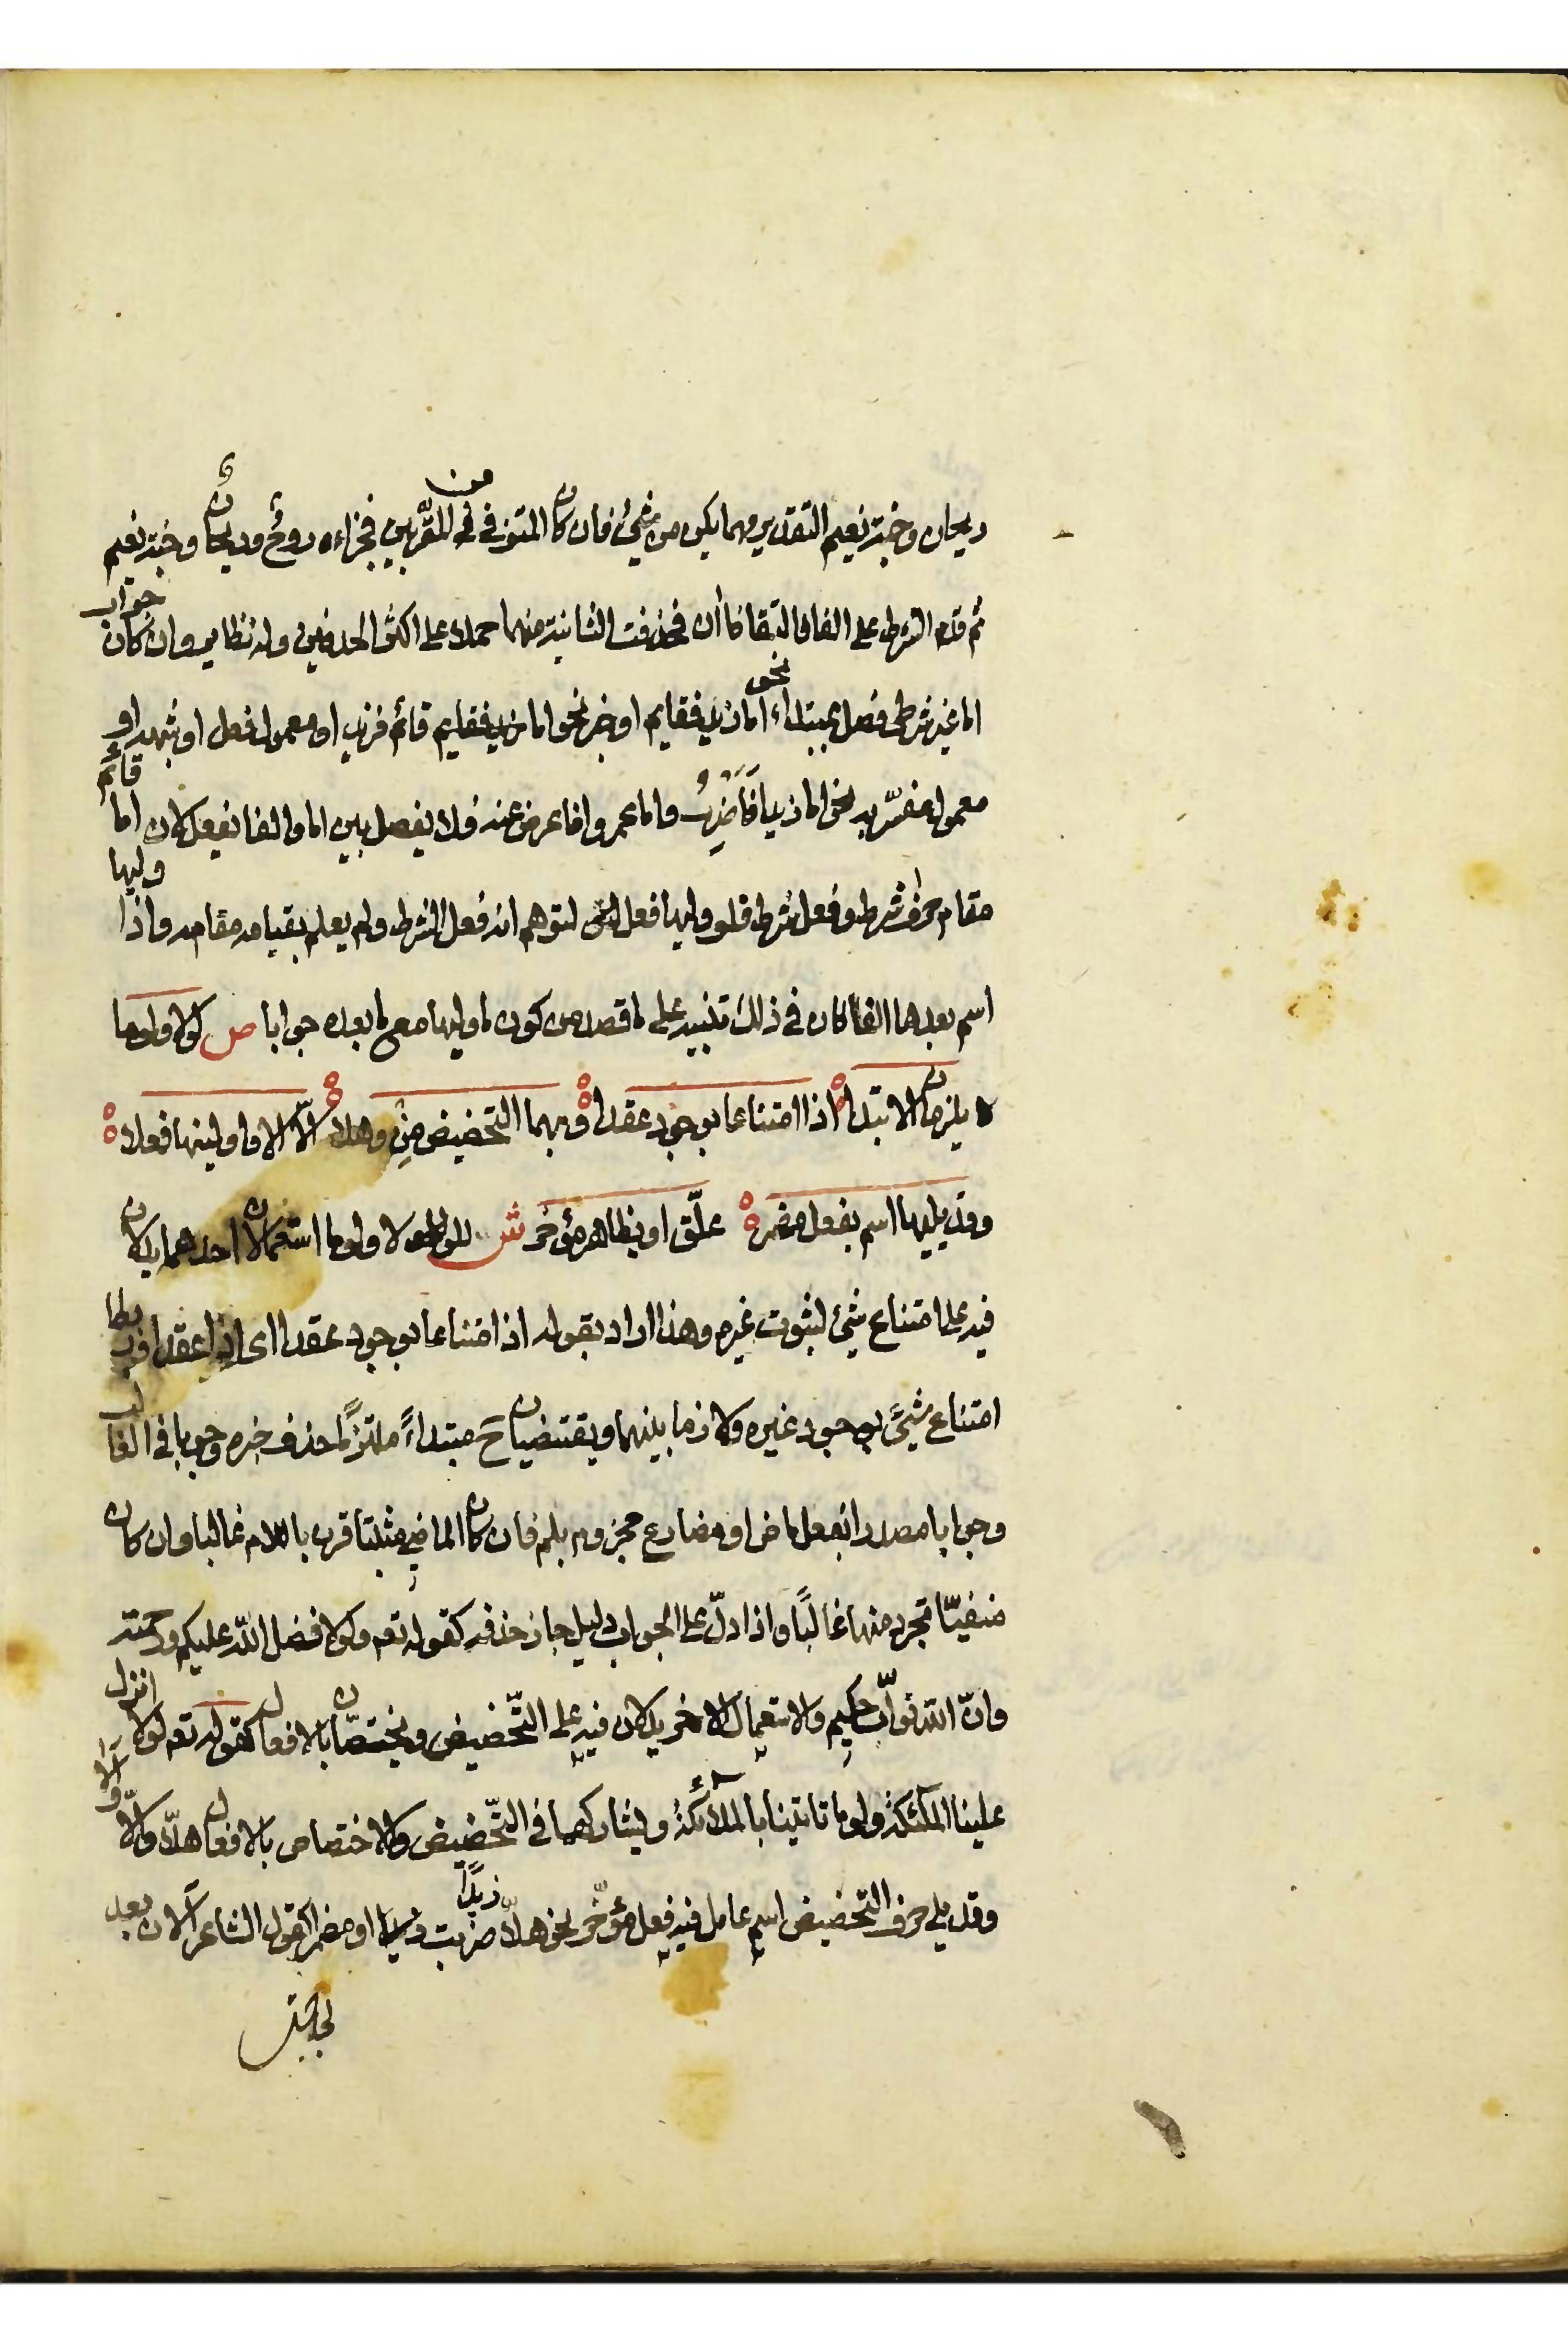 ريحان وجنة نعيم التقدير مهما يكن من شيئ فان كان المتوفى من المقربين فجزاءه روحٌ وريحانٌ وجنة نعيم
ثم قدم الشرط على الفا فالتقا فاأن فحذفت الثانية منهما حملا على اكثر الحذفين وله نظاير وان كان جواب
اما غير شرطي فصل بمبتداء نحو اما زيد فقايم او خبر نحو اما قائم فزيد او معمول فعل او شبهه او
معمول مفسّر به نحو اما زيدا فَاَضْرِبُ واما عمروا فاعرض عنه فلا يفصل بين اما والفا بفعل لان اما قائم
مقام حرف شرط وفعل شرط فلو وليها فعل لتوهم انه فعل الشرط ولم يعلم بقيامه مقامه واذا وليها
اسم بعدها الفا كان في ذلك تنبيه على ما قصد من كون ما وليها مع ما بعده جوابا ص لولا ولوما
يلزمان الابتدا اذا امتناعا بوجود عقدا وبهما التحضيض مِزْ وهلا الّا الا واولينها فعلا
وقد يليها اسم بفعل مضمر علّق او بظاهر مؤخر ش للولا ولوما استعمالان احدهما يدلان
فيه على امتناع شيئ لثبوت غيره وهذا اراد بقوله اذا امتناعا بوجود عقدا اى اذا عقدا وربطا
امتناع شيئ بوجود غيره ولازما بينهما ويقتضيان ح مبتداءً ملتزمًا حذف خبره وجوبا في الغالب
وجوابا مصدرا بفعل ماض او مضارع مجزوم بلم فان كان الماضي مثبتا قرن باللام غالبا وان كان
منفيّا تجرد منها غالبًا واذا دلّ على الجواب دليل جاز حذفه كقوله تعـ ولولا فضل الله عليكم ورحمته
وانّ الله توّاب حكيم والاستعمال الاخر يدلان فيه على التّحضيض ويختصّان بالافعال كقوله تعـ لولا انزل
علينا الملئكة ولوما تاتينا بالملائكة ويشاركهما في التّحضيض والاختصاص بالافعال هلّا وألّا وألا
وقد يلي حرف التحضيض اسم عامل فيه فعل مؤخّر نحو هلّا زيدًا ضربت او مضمر كقول الشاعر آلان بعد
لجاجتى